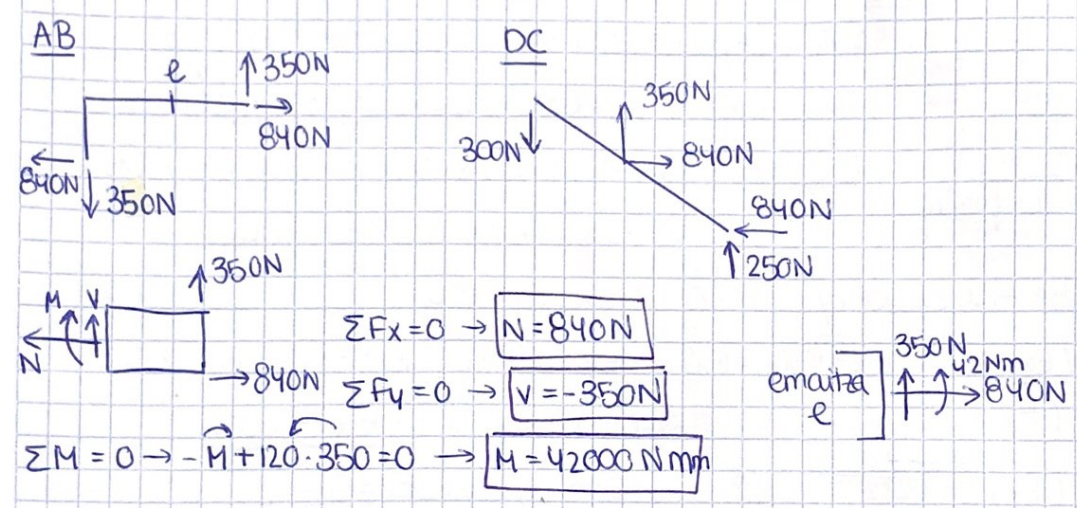 AB
e
↑350N
→
840N
←
840N
↓350N
DC
↑350N
300N↓
→840N
840N
←
↑250N
↑350N
M V
N
→840N
ΣFx=0 → N=840N
ΣFy=0 → V=-350N
ΣM=0 → -M+120·350=0 → M=42000Nmm
emaitza
e
350N
42Nm
→840N